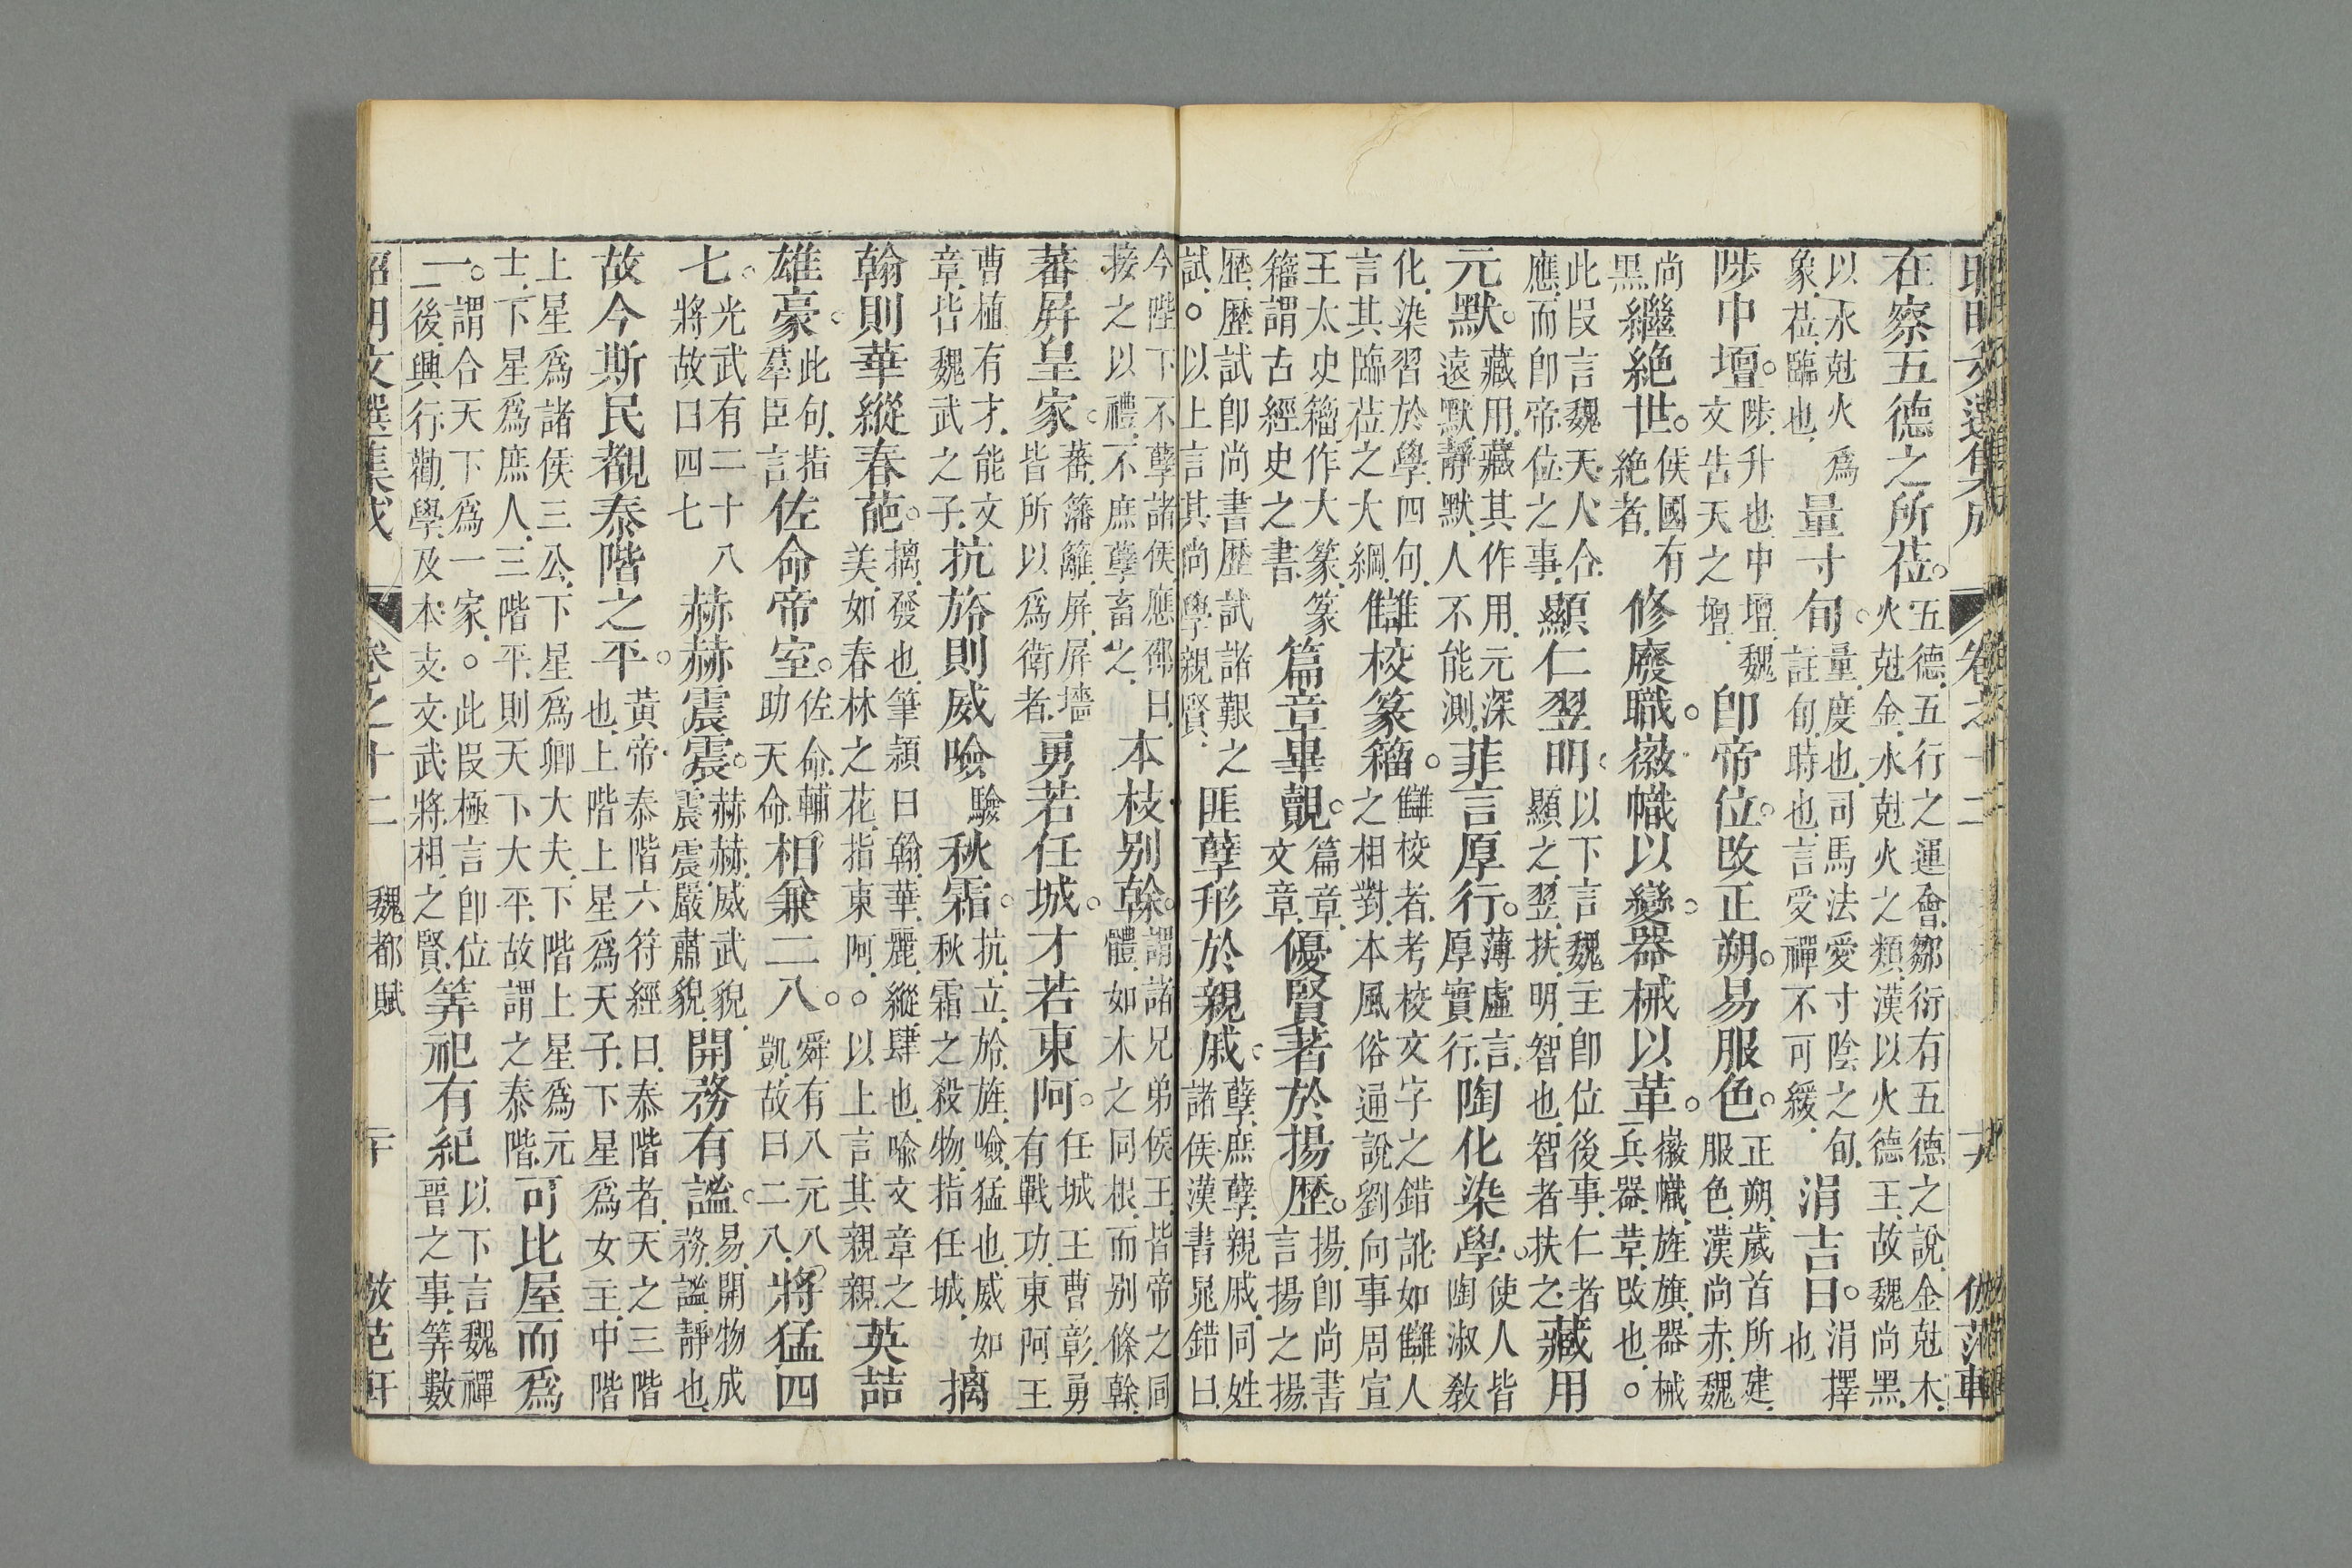 昭明文選集成　卷之十二　十九　倣范軒
在察五德之所莅。五德五行之運會鄒衍有五德之說金尅木火尅金水尅火之類漢以火德王故魏尚黑
以水尅火爲象莅臨也量寸旬。量度也司馬法愛寸陰之旬註旬時也言受禪不可緩涓吉日。涓擇也
陟中壇。陟升也中壇魏文告天之壇卽帝位。改正朔。易服色。正朔歲首所建服色漢尚赤魏
尚黑繼絶世。侯國有絶者修廢職。徽幟以變。器械以革。徽幟旌旗器械兵器革改也。
此段言魏天人合應而卽帝位之事顯仁翌明。以下言魏主卽位後事仁者顯之翌扶明智也智者扶之藏用
元默。藏用藏其作用元深遠默靜默人不能測菲言厚行。薄虛言厚實行陶化染學。使人皆陶淑敎
化染習於學四句言其臨莅之大綱讎校篆籀。讎校者考校文字之錯訛如讎人之相對本風俗通說劉向事周宣
王太史籀作大篆篆籀謂古經史之書篇章畢覿。篇章文章優賢著於揚歷。揚卽尚書言揚之揚
歷歷試卽尚書歷試諸艱之試。以上言其尚學親賢匪孽形於親戚。孽庶孽親戚同姓諸侯漢書鼂錯曰
今陛下不孽諸侯應邵曰接之以禮不庶孽畜之本枝别榦。謂諸兄弟侯王皆帝之同體如木之同根而别條榦
蕃屏皇家。蕃籓籬屏屏墻皆所以爲衛者勇若任城。才若東阿。任城王曹彰勇有戰功東阿王
曹植有才能文章皆魏武之子抗旍則威噞驗秋霜。抗立旍旌噞猛也威如秋霜之殺物指任城摛
翰則華縱春葩。摛發也筆穎曰翰華麗縱肆也喩文章之美如春林之花指東阿。以上言其親親英喆
雄豪。此句指羣臣言佐命帝室。佐命輔助天命相兼二八。舜有八元八凱故曰二八將猛四
七。光武有二十八將故曰四七赫赫震震。赫赫威武貌震震嚴肅貌開務有謐。易開物成務謐靜也
故今斯民覩泰階之平。黃帝泰階六符經曰泰階者天之三階也上階上星爲天子下星爲女主中階
上星爲諸侯三公下星爲卿大夫下階上星爲元士下星爲庶人三階平則天下大平故謂之泰階可比屋而爲
一。謂合天下爲一家。此段極言卽位後興行勸學及本支文武將相之賢筭祀有紀以下言魏禪晉之事筭數
昭明文選集成　卷之十二　魏都賦　二十　倣范軒